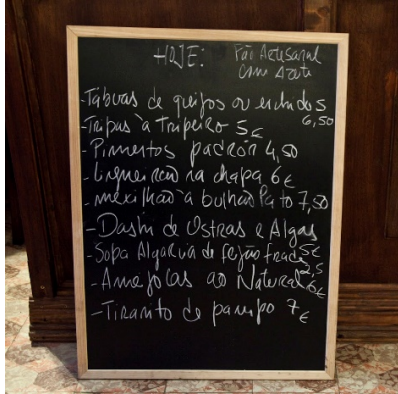 HOJE: Pão Artesanal
Com Azeite
-Tábuas de queijos ou enchidos
6,50
-Tripas à Tripeiro 5€
-Pimentos padrón 4,50
-Lingueirão na chapa 6€
-mexilhão à bulhão Pato 7,50
-Dashi de Ostras e Algas
5€
-Sopa Algarvia de feijão frade
2,5
-Ameijoas ao Natural 6€
-Tiradito de pampo 7€